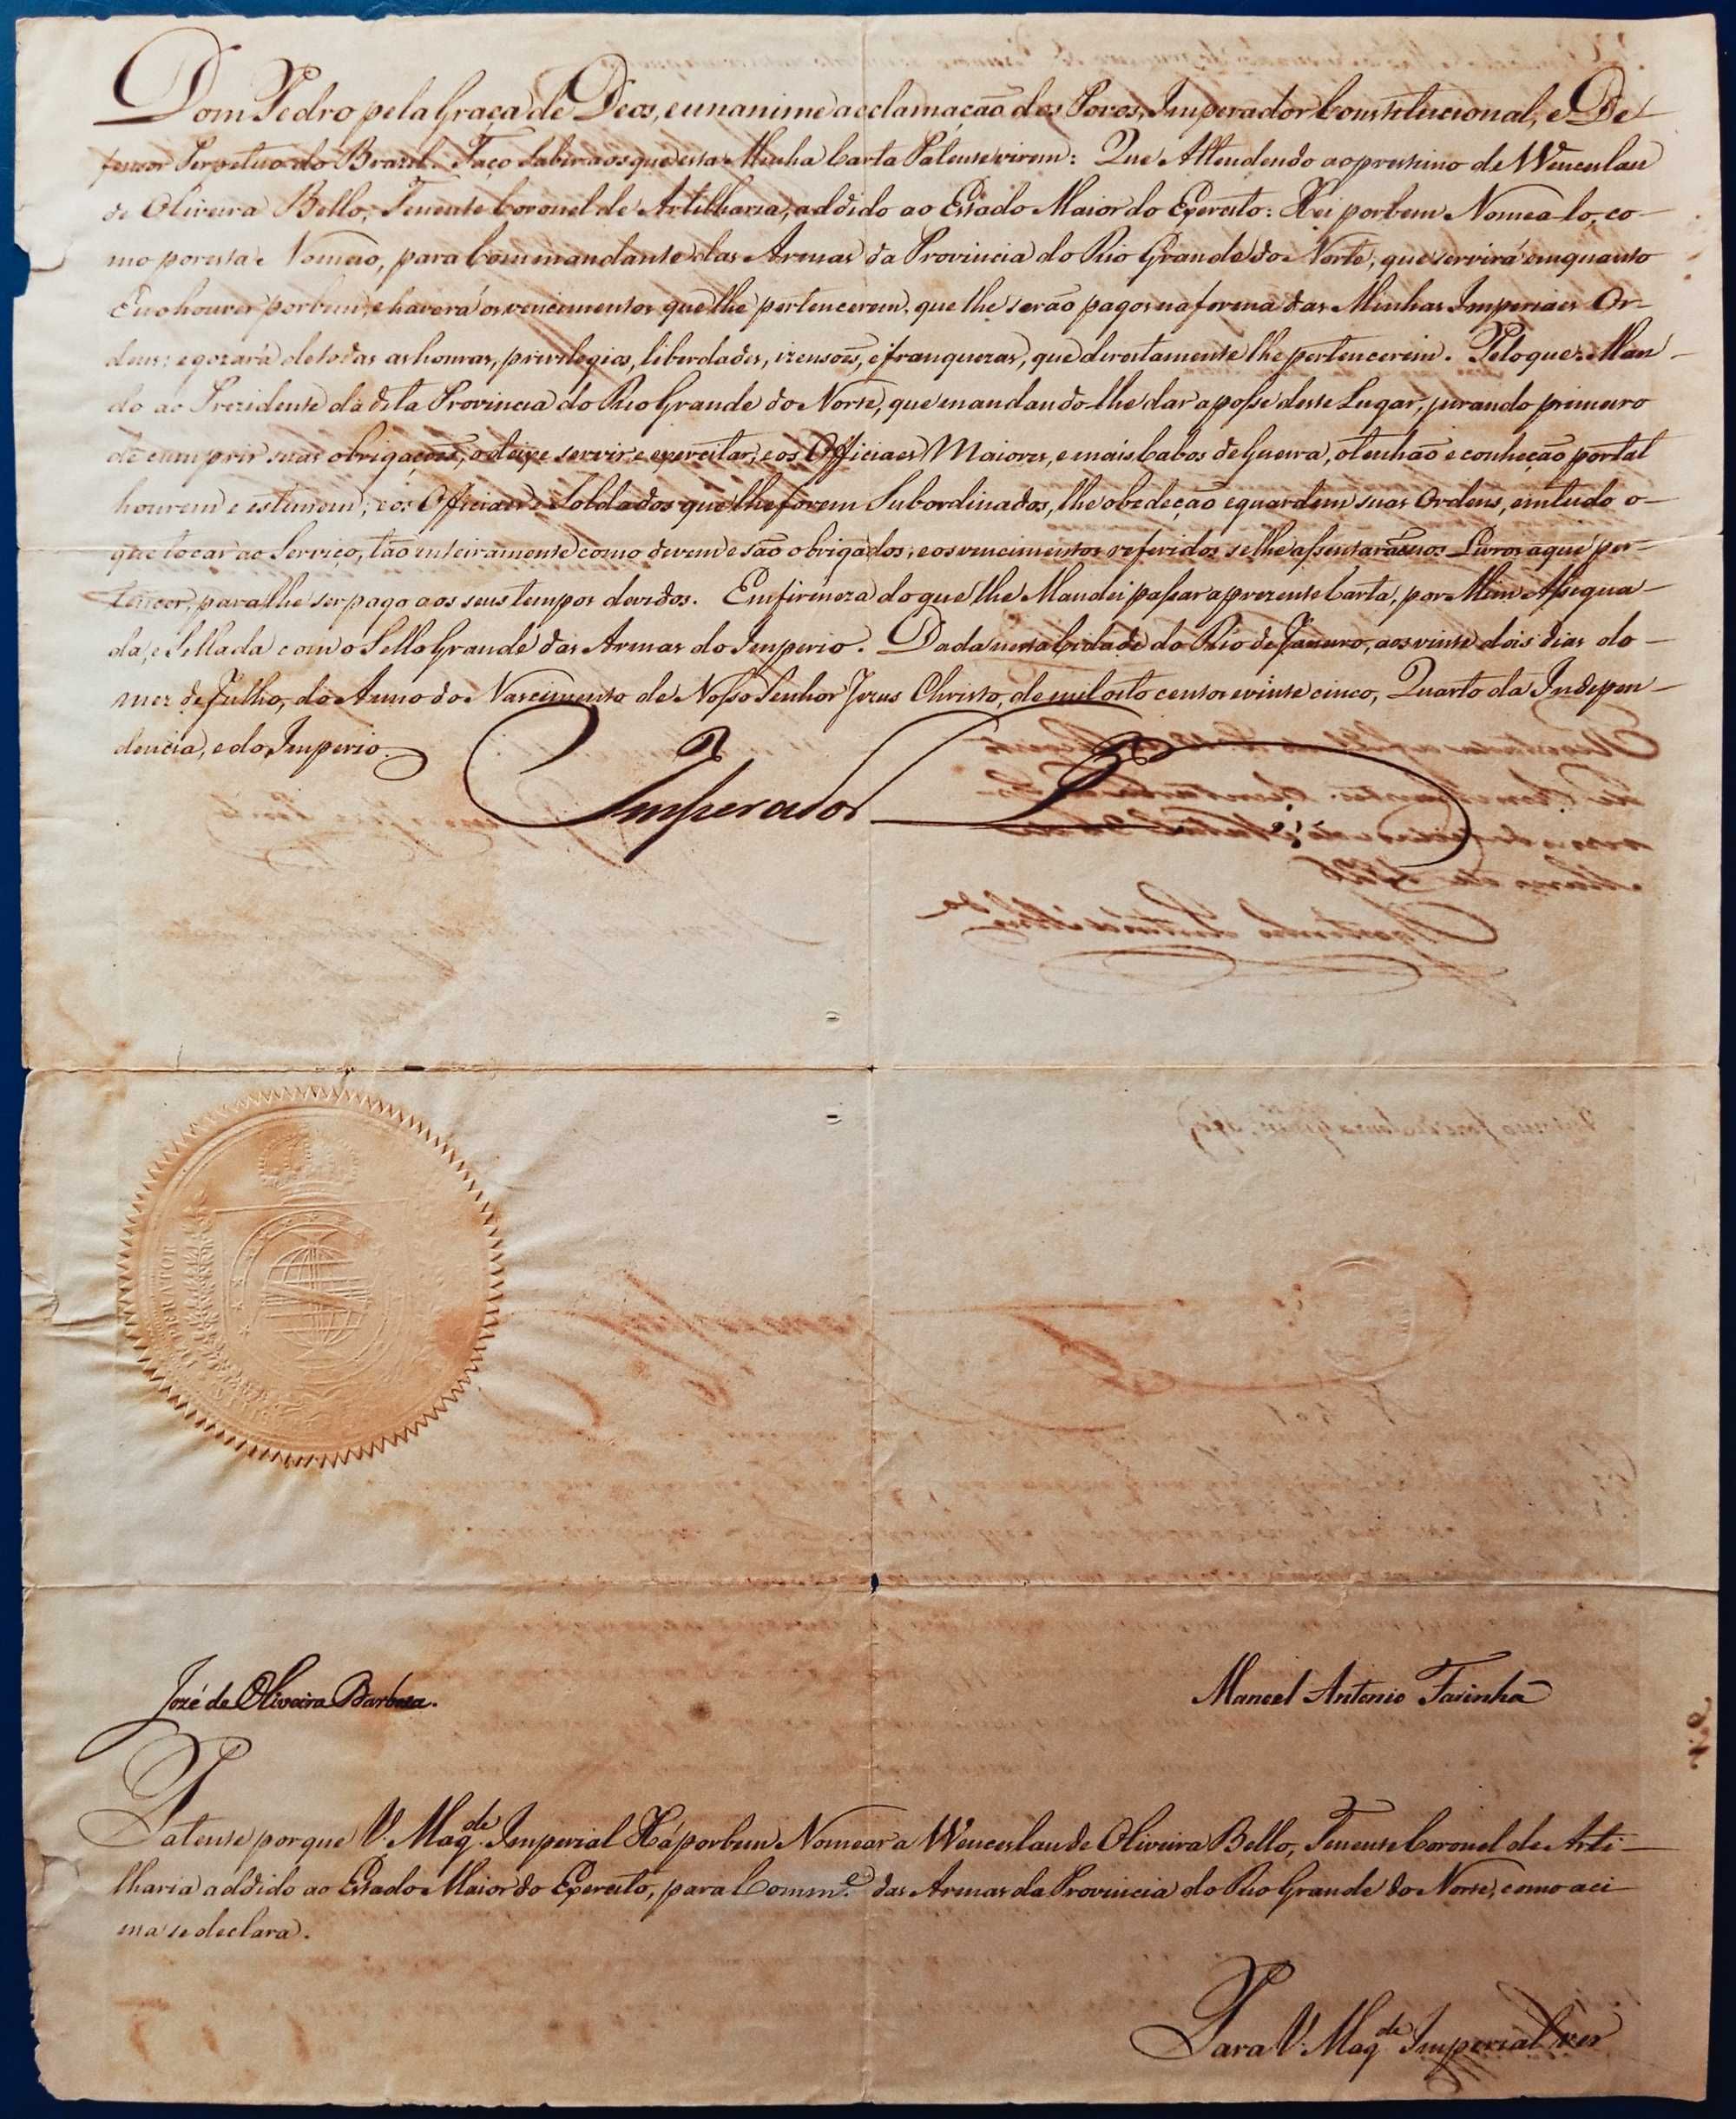 Dom Pedro pela Graça de Deos, e unanime acclamacão dos Povos, Imperador Constitucional, e De-
fensor Perpetuo do Brazil. Faço saber aos que esta Minha Carta Patente virem: Que Attendendo ao prestimo de Wenceslau
de Oliveira Bello, Tenente Coronel de Artilharia, addido ao Estado Maior do Exercito: Hei por bem Nomea-lo, co-
mo por esta Nomeio, para Commandante das Armas da Provincia do Rio Grande do Norte, que servirá emquanto
Eu o houver por bem, e haverá os vencimentos que lhe pertencerem, que lhe serão pagos na forma das Minhas Imperiaes Or-
dens: e gozará de todas as honras, privilegios, liberdades, izensoẽs, e franquezas, que direitamente lhe pertencerem. Pelo que Man-
do ao Prezidente da dita Provincia do Rio Grande do Norte, que mandando-lhe dar a posse deste Lugar, jurando primeiro
de cumprir suas obrigaçoẽs, o deixe servir e exercitar, e os Officiaes Maiores, e mais Cabos de Guerra, o tenhão e conheção por tal
honrem e estimem; e os Officiaes e Soldados que lhe forem Subordinados, lhe obedeção e guardem suas Ordens, em tudo o-
que tocar ao Serviço, tão inteiramente como devem e são obrigados; e os vencimentos referidos se lhe assentarão nos Livros a que per-
tencer, para lhe ser pago aos seus tempos devidos. Em firmeza do que lhe Mandei passar a prezente Carta, por Mim Assigna-
da, e Sellada com o Sello Grande das Armas do Imperio. Dada nesta Cidade do Rio de Janeiro, aos vinte dois dias do-
mez de Julho, do Anno do Nascimento de Nosso Senhor Jezus Christo, de mil oito centos e vinte cinco, Quarto da Indepen-
dencia, e do Imperio.
Imperador
Jozé de Oliveira Barboza.
Manoel Antonio Farinha
Patente por que V. Mag.de Imperial Há por bem Nomear a Wenceslau de Oliveira Bello, Tenente Coronel de Arti-
lharia addido ao Estado Maior do Exercito, para Comm.e das Armas da Provincia do Rio Grande do Norte, como aci
ma se declara.
Para V. Mag.de Imperial ver